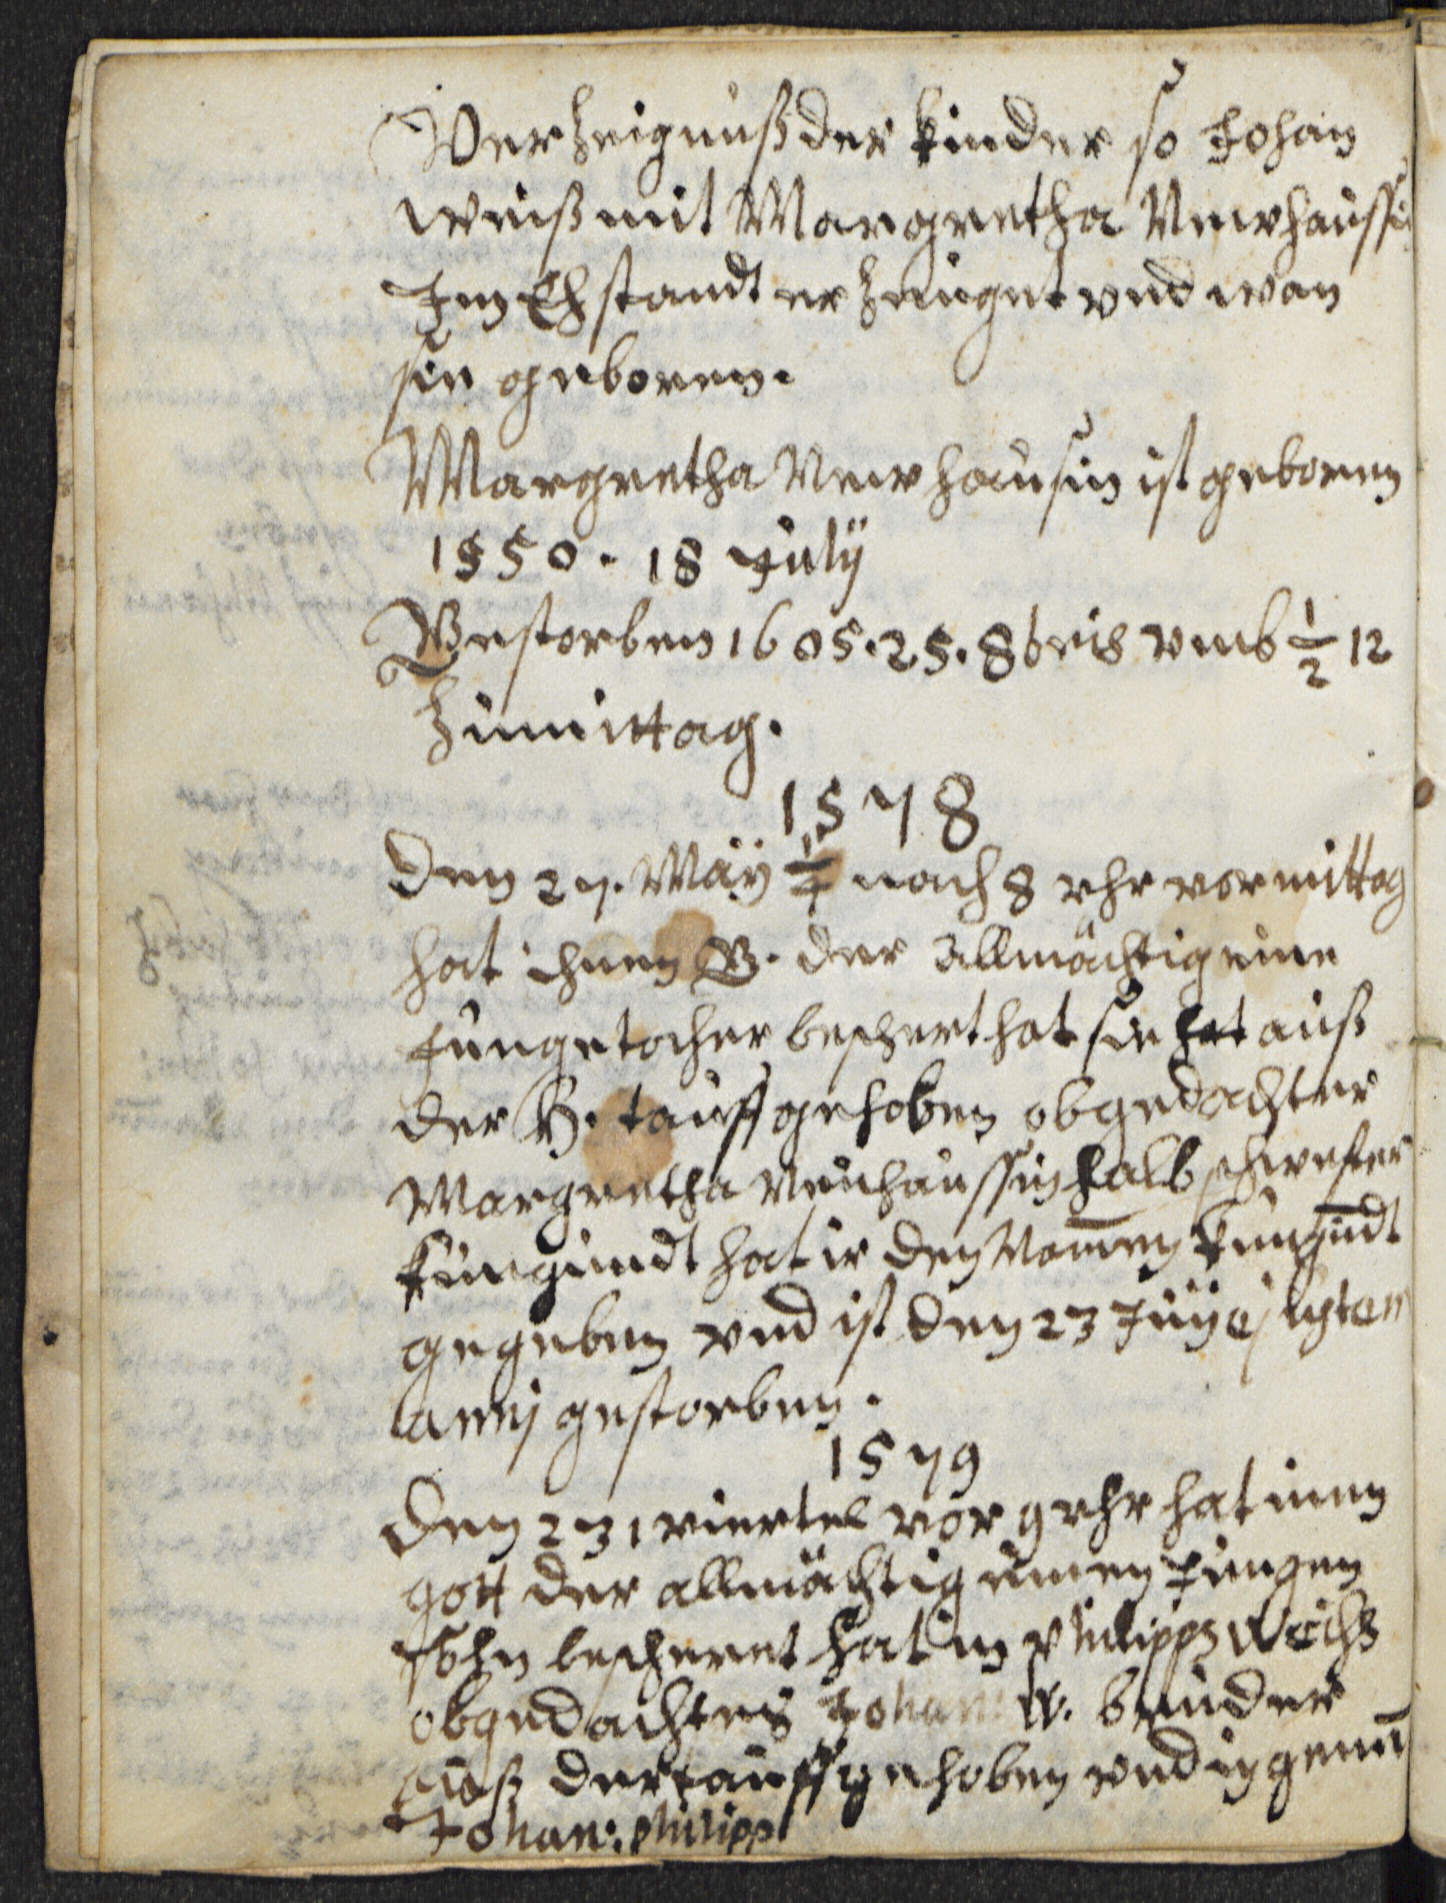 Verzeignuß der kinder so Johan
weiß mit Margretha Newhaussin
Im Ehstandt erzeuget vnd wan
sie geboren.
Margretha Newhausin ist geboren
1550. 18 Julÿ
Gestorben 1605. 25. 8bris vmb 1/2 12
Zu mittag.
1578
Den 27. Maÿ 1/4 nach 8 vhr vormittag
hat ihnen G. der Allmächtig eine
Junge tocher beschert hat sie hat auß
der H. tauff gehoben obgedachter
Margretha Neuhaussin halb schwester
Küngundt hat ir den Namen Küngūdt
gegeben vnd ist den 23
gestorben.
1579
Den 23 1 viertel vor 9 vhr hat inen
gott der allmächtig einen Jungen
Sohn bescheret hat in Philipps Weiß
obgedachtes Johan: W. bruder
auß der tauff gehoben vnd in genēt
Johan: Philipp